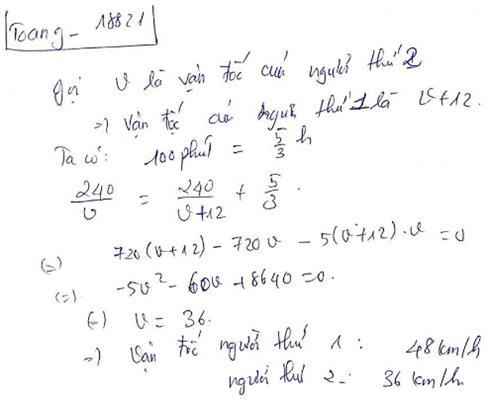 Toang - 18821
Gọi v là vận tốc của người thứ 2
=) vận tốc của người thứ 1 là v+12.
Ta có: 100 phút = 5/3 h
240/v = 240/(v+12) + 5/3.
(=) 720(v+12) - 720v - 5(v+12).v = 0
(=) -5v² - 60v + 8640 = 0.
(=) v = 36.
=) Vận tốc người thứ 1: 48 km/h
người thứ 2: 36 km/h.